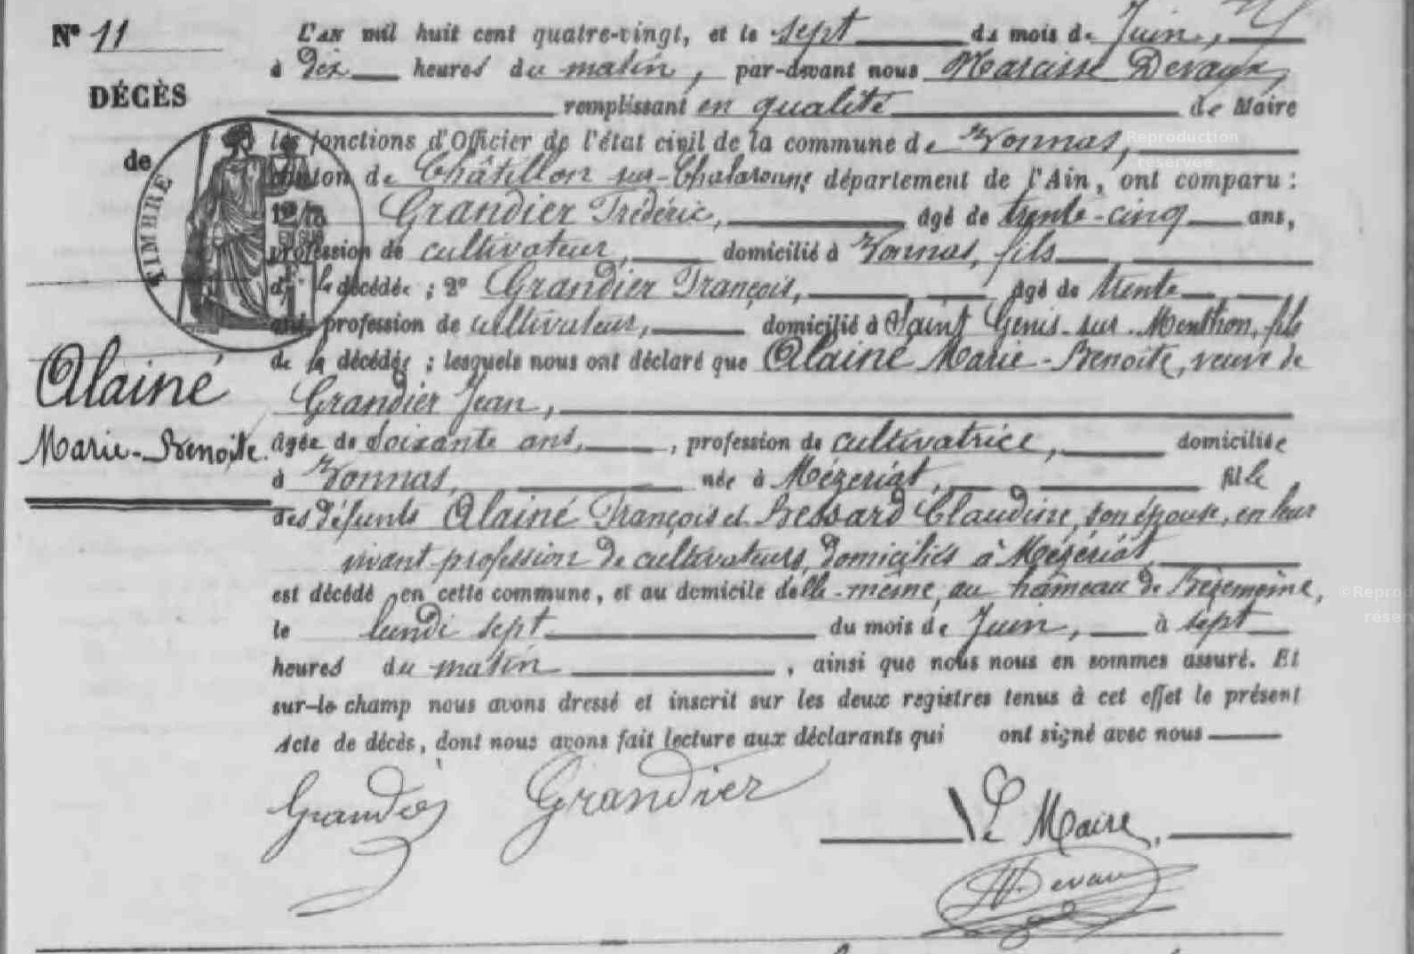 N° 11
DÉCÈS
de
TIMBRE
Alainé
Marie-Benoite
L'an mil huit cent quatre-vingt, et le sept du mois de Juin,
à Dix heures du matin, par-devant nous Narcisse Devaux,
remplissant en qualité de Maire
les fonctions d'Officier de l'état civil de la commune de Vonnas,
canton de Châtillon-sur-Chalaronne département de l'Ain, ont comparu :
Grandier Frédéric, âgé de trente-cinq ans,
profession de cultivateur, domicilié à Vonnas, fils
de la décédée ; 2° Grandier François, âgé de trente
ans, profession de cultivateur, domicilié à Saint Genis-sur-Menthon, fils
de la décédée ; lesquels nous ont déclaré que Alainé Marie-Benoite, veuve de
Grandier Jean,
âgée de soixante ans, profession de cultivatrice, domiciliée
à Vonnas, née à Mézériat, fille
des défunts Alainé François et Bessard Claudine, son épouse, en leur
vivant profession de cultivateurs, domiciliés à Mézériat,
est décédé en cette commune, et au domicile d'elle-même, au hameau de
le lundi sept du mois de Juin, à sept
heures du matin, ainsi que nous nous en sommes assuré. Et
sur-le champ nous avons dressé et inscrit sur les deux registres tenus à cet effet le présent
Acte de décès, dont nous avons fait lecture aux déclarants qui ont signé avec nous
Grandier Grandier
Le Maire,
N Devaux